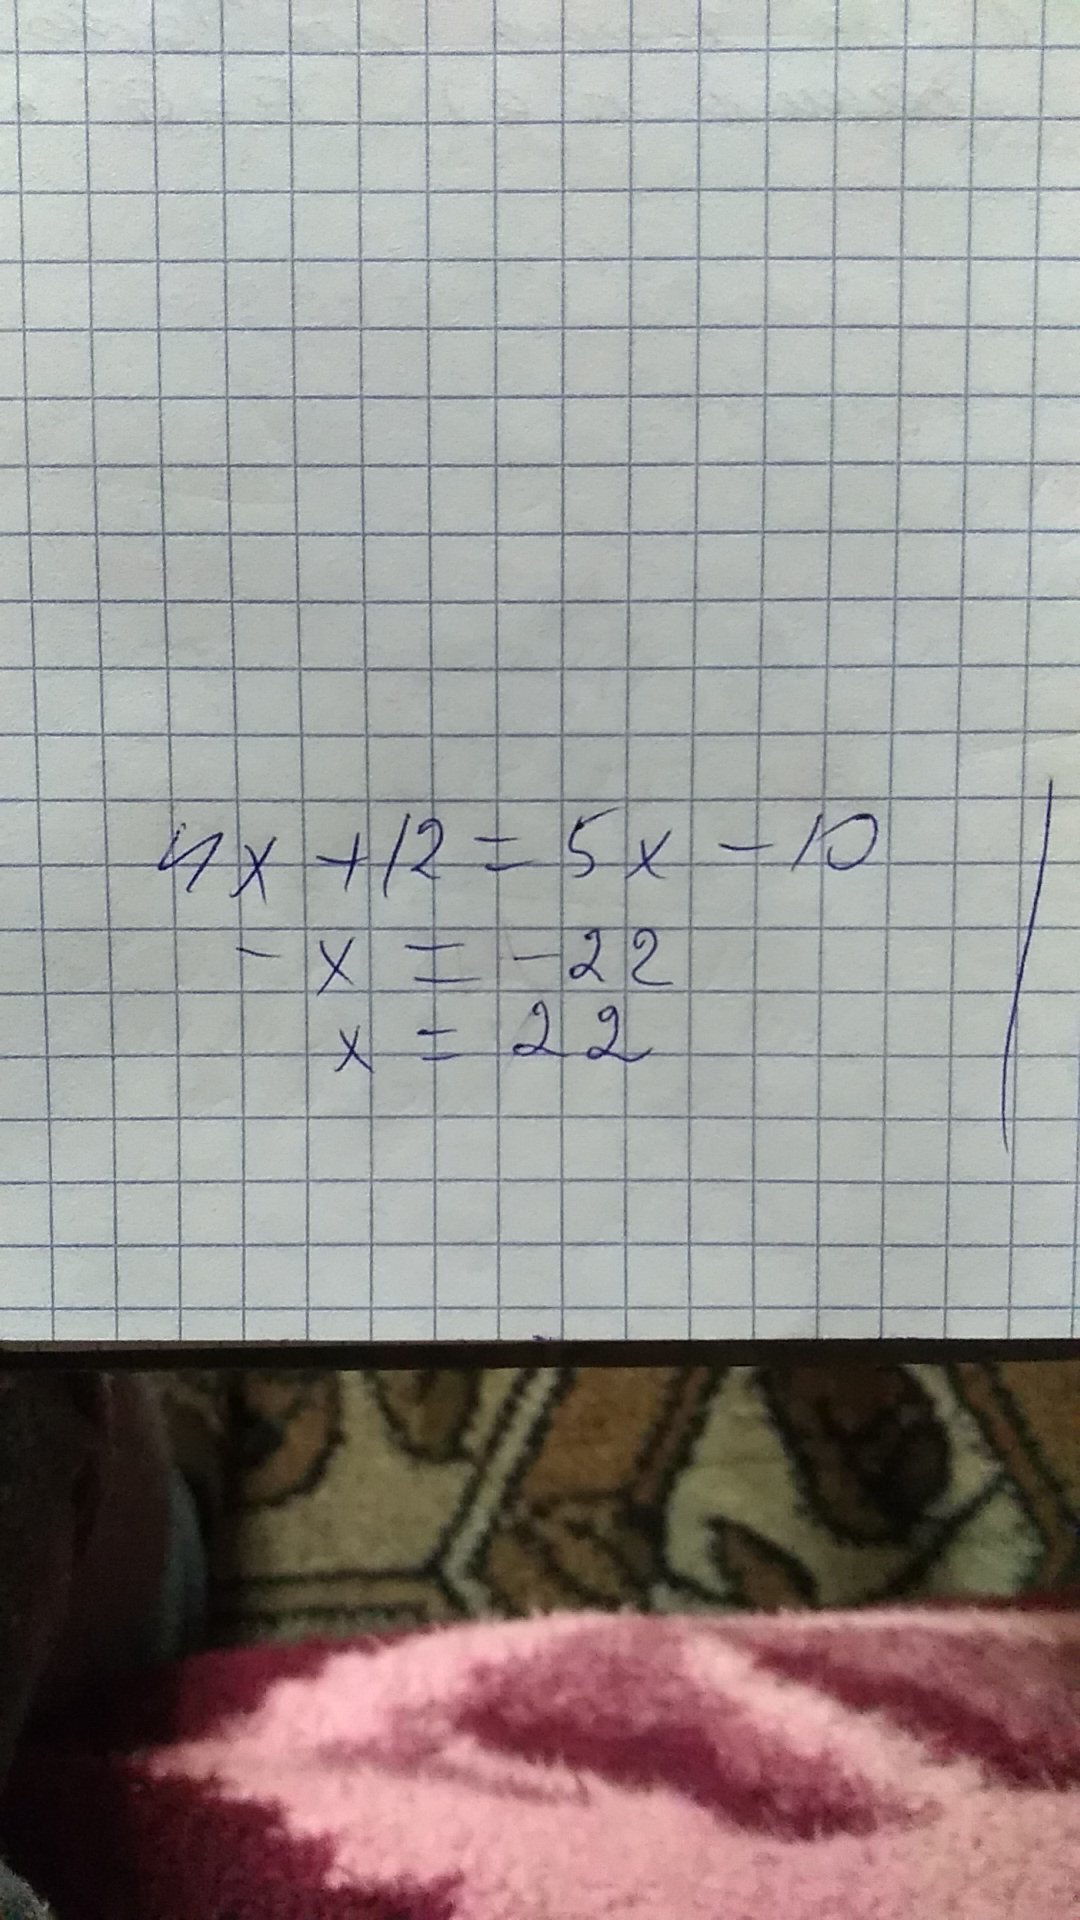 4x + 12 = 5x - 10
- x = -22
x = 22